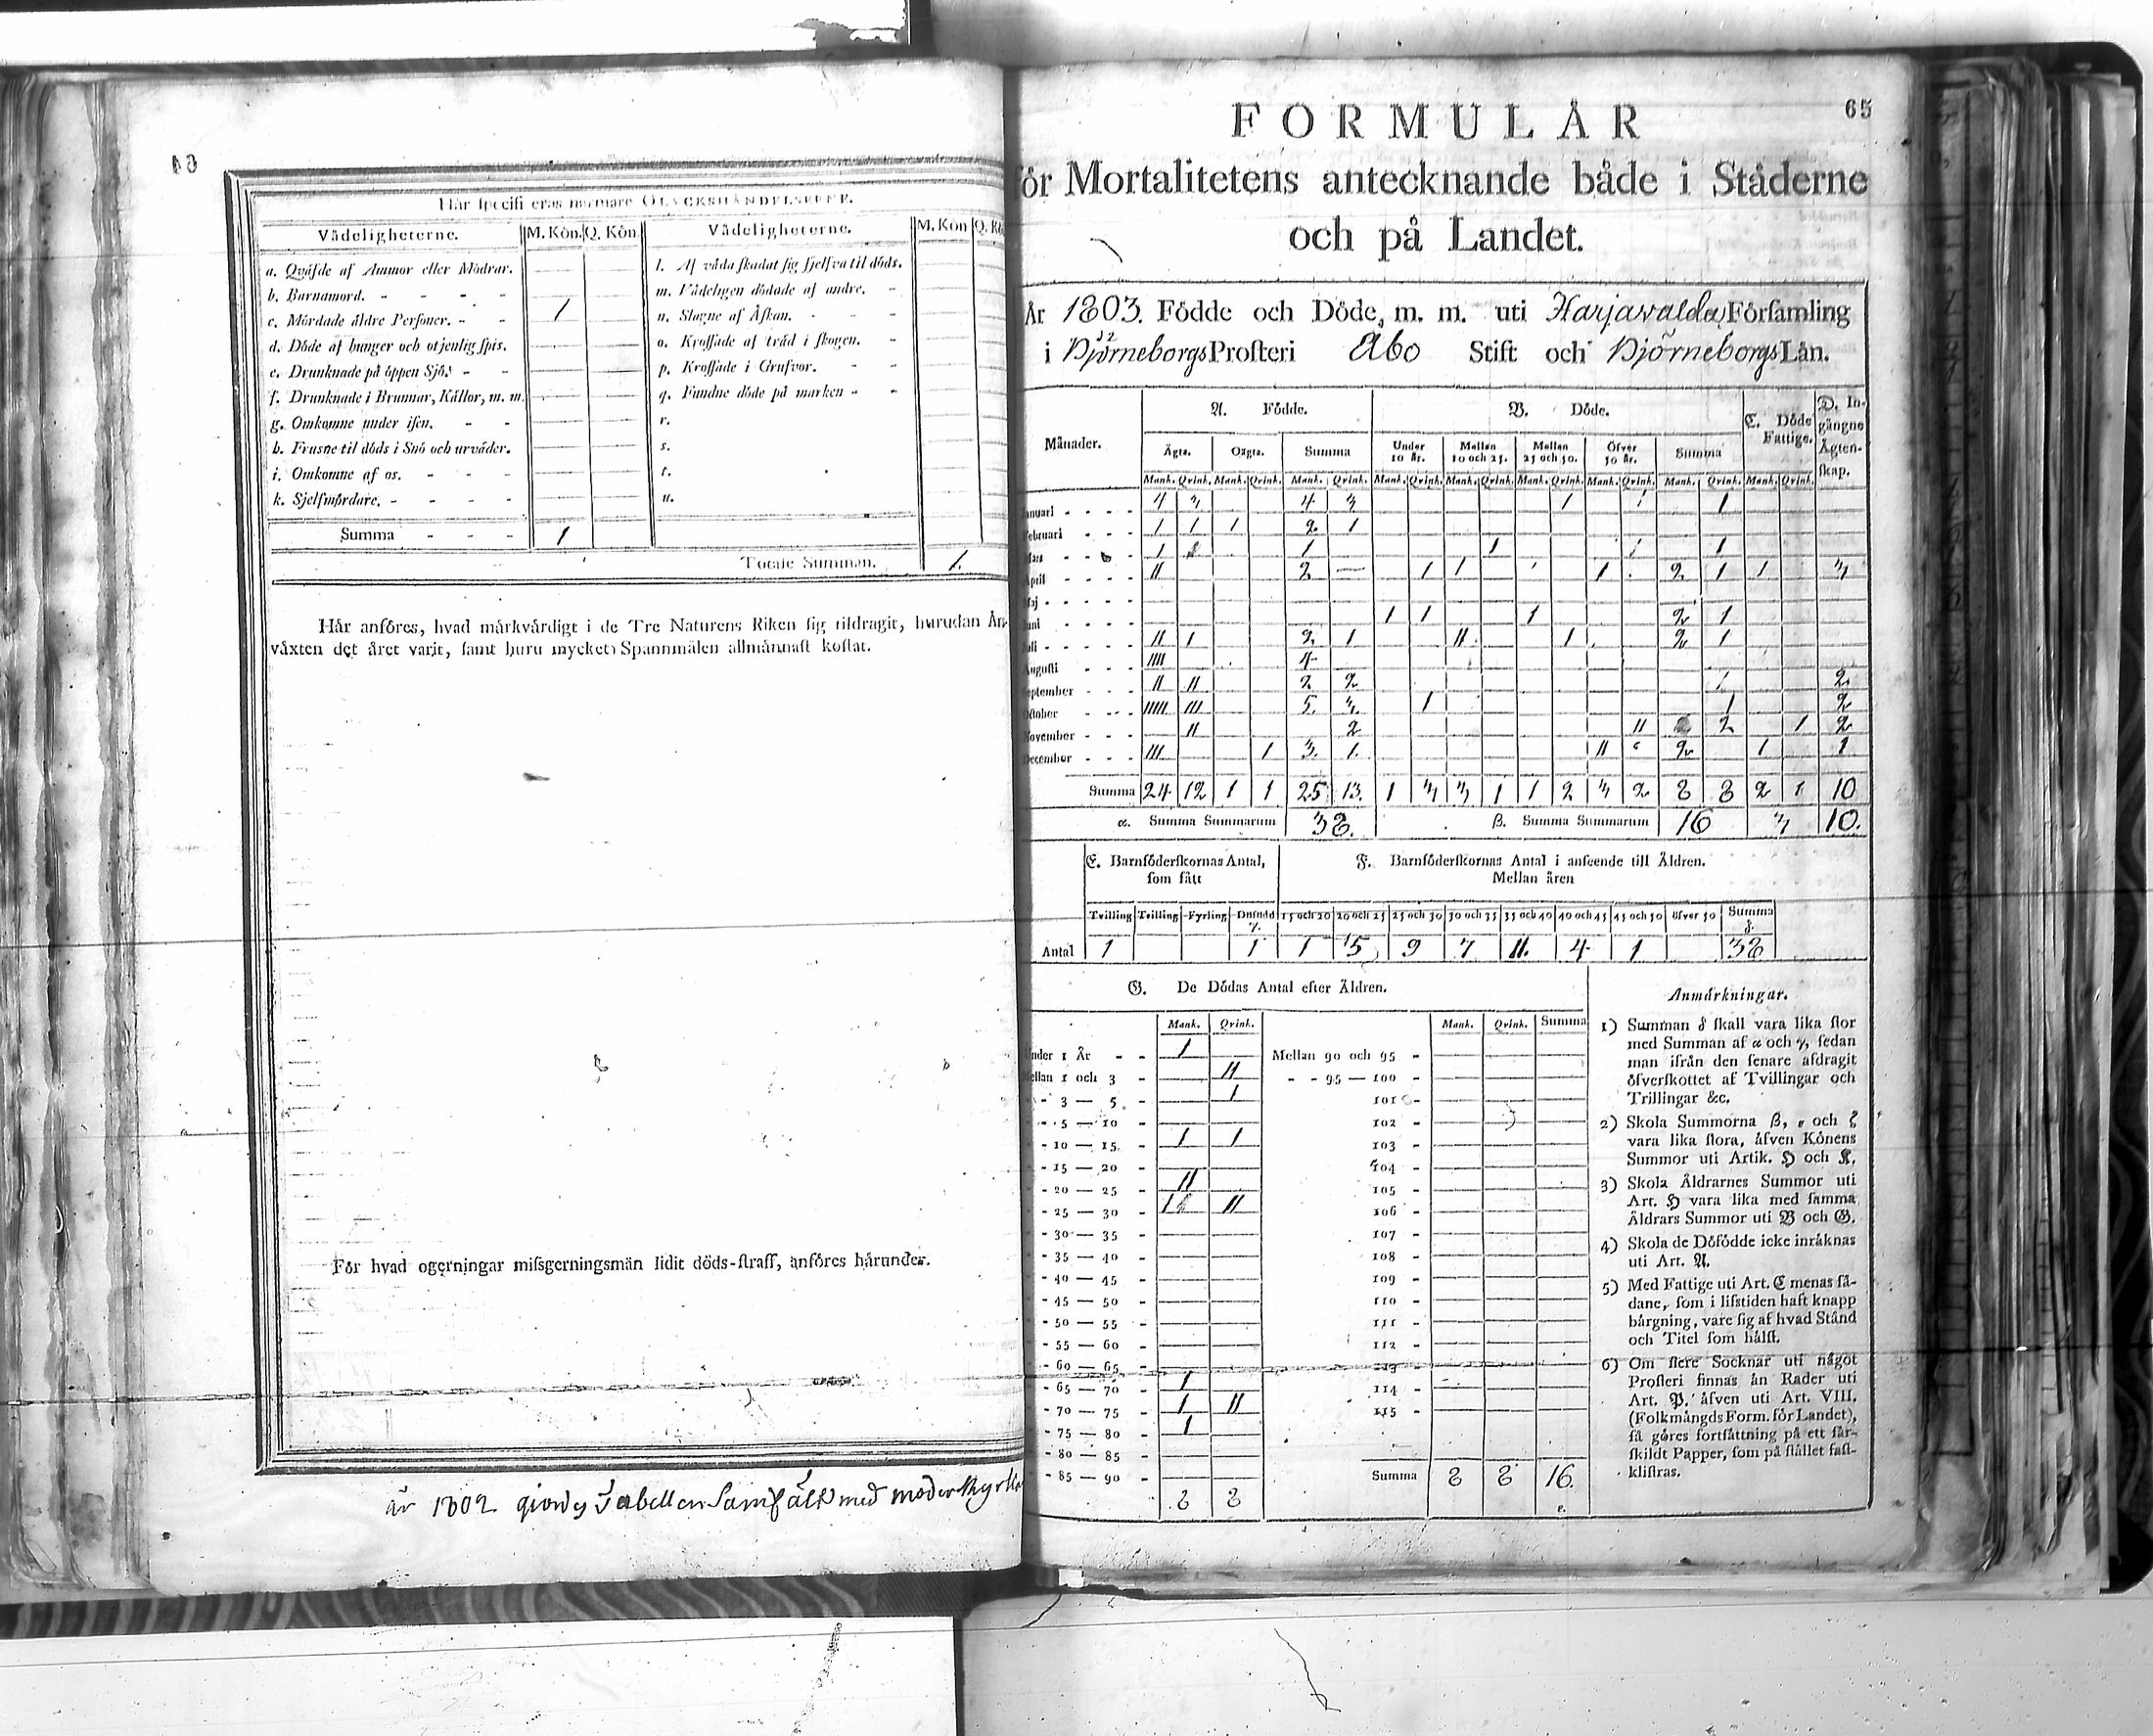 Här specificeras närmare OLYCKSHÄNDELSERNE.
Vådeligheterne. M. Kön. Q. Kön. Vådeligheterne. M. Kön Q. Kö
a. Qväfde af Ammor eller Mödrar. l. Af våda skadat sig sjelfva til döds.
b. Barnamord. - - - - m. Vådeligen dödade af andre. -
c. Mördade äldre Personer. - - 1 n. Slagne af Åskan. - - -
d. Döde af hunger och otjenlig spis. o. Krossade af träd i skogen. -
e. Drunknade på öppen Sjö. - - p. Krossade i Grufvor. - -
f. Drunknade i Brunnar, Källor, m. m. q. Fundne döde på marken - -
g. Omkomne under isen. - - r.
h. Frusne til döds i Snö och urväder. s.
i. Omkomne af os. - - - t.
k. Sjelfmördare. - - - - u.
Summa - - - 1
Totale Summan. 1.
Här anföres, hvad märkvärdigt i de Tre Naturens Riken sig tildragit, hurudan År-
växten det året varit, samt huru mycket Spannmålen allmännast kostat.
För hvad ogerningar missgerningsmän lidit döds-straff, anföres härunder.
år 1802 giordes Tabellen Samfält med moderkyrka
65
FORMULÄR
för Mortalitetens antecknande både i Städerne
och på Landet.
År 1803. Födde och Döde, m. m. uti Harjavalda Församling
i Björneborgs Prosteri Åbo Stift och Björneborgs Län.
Månader. A. Födde. B. Döde. C. Döde Fattige. D. In-gångne Ägten-skap.
Ägta. Oägta. Summa Under 10 år. Mellan 10 och 25. Mellan 25 och 50. Öfver 50 år. Summa
Mank. Qvink. Mank. Qvink. Mank. Qvink. Mank. Qvink. Mank. Qvink. Mank. Qvink. Mank. Qvink. Mank. Qvink. Mank. Qvink.
Januari - - - - 4 3 4 3 1 1 1
Februari - - - 1 1 1 2 1
Mars - - - 1 1 1 1 1
April - - - - II 2 — 1 1 1 2 1 1 3
Maj - - - - -
Juni - - - - 1 1 1 2 1
Juli - - - - II 1 2 1 II 1 2 1
Augusti - - - IIII 4
September - - - II II 2 2 1 2
October - - - IIIII III 5 3 1 1 2
November - - - II 2 II 2 1 2
December - - - III 1 3 1 II 2 1 1
Summa 24 12 1 1 25 13 1 3 3 1 1 2 3 2 8 8 2 1 10
α. Summa Summarum 38. β. Summa Summarum 16 3 10.
E. Barnsöderskornas Antal, F. Barnsöderskornas Antal i anseende till Åldren.
som fått Mellan åren
Tvilling Trilling Fyrling Dösödd 15 och 20 20 och 25 25 och 30 30 och 35 35 och 40 40 och 45 45 och 50 öfver 50 Summa
γ. δ.
Antal 1 1 1 5 9 7 11. 4 1 38
G. De Dödas Antal efter Åldren.
Mank. Qvink. Mank. Qvink. Summa
Under 1 År - - 1 Mellan 90 och 95 -
Mellan 1 och 3 - II - - 95 — 100 -
- - 3 — 5 - 1 101 -
- - 5 — 10 - 102 -
- 10 — 15 - 1 1 103 -
- 15 — 20 - 104 -
- 20 — 25 - II 105 -
- 25 — 30 - 1 II 106 -
- 30 — 35 - 107 -
- 35 — 40 - 108 -
- 40 — 45 - 109 -
- 45 — 50 - 110 -
- 50 — 55 - 111 -
- 55 — 60 - 112 -
- 60 — 65 - 113 -
- 65 — 70 - 1 114 -
- 70 — 75 - 1 II 115 -
- 75 — 80 - 1
- 80 — 85 -
- 85 — 90 - Summa 8 8 16.
8 8 ε.
Anmärkningar.
1) Summan δ skall vara lika stor
med Summan af α och γ, sedan
man ifrån den senare afdragit
öfverskottet af Tvillingar och
Trillingar &c.
2) Skola Summorna β, ε och ζ
vara lika stora, äfven Könens
Summor uti Artik. H och K.
3) Skola Åldrarnes Summor uti
Art. H vara lika med samma
Åldrars Summor uti B och G.
4) Skola de Dösödde icke inräknas
uti Art. A.
5) Med Fattige uti Art. C menas så-
dane, som i lifstiden haft knapp
bärgning, vare sig af hvad Stånd
och Titel som hälst.
6) Om flere Socknar uti något
Prosteri finnas än Rader uti
Art. P. äfven uti Art. VIII.
(Folkmängds Form. för Landet),
så göres fortsättning på ett sär-
skildt Papper, som på stället fast-
klistras.